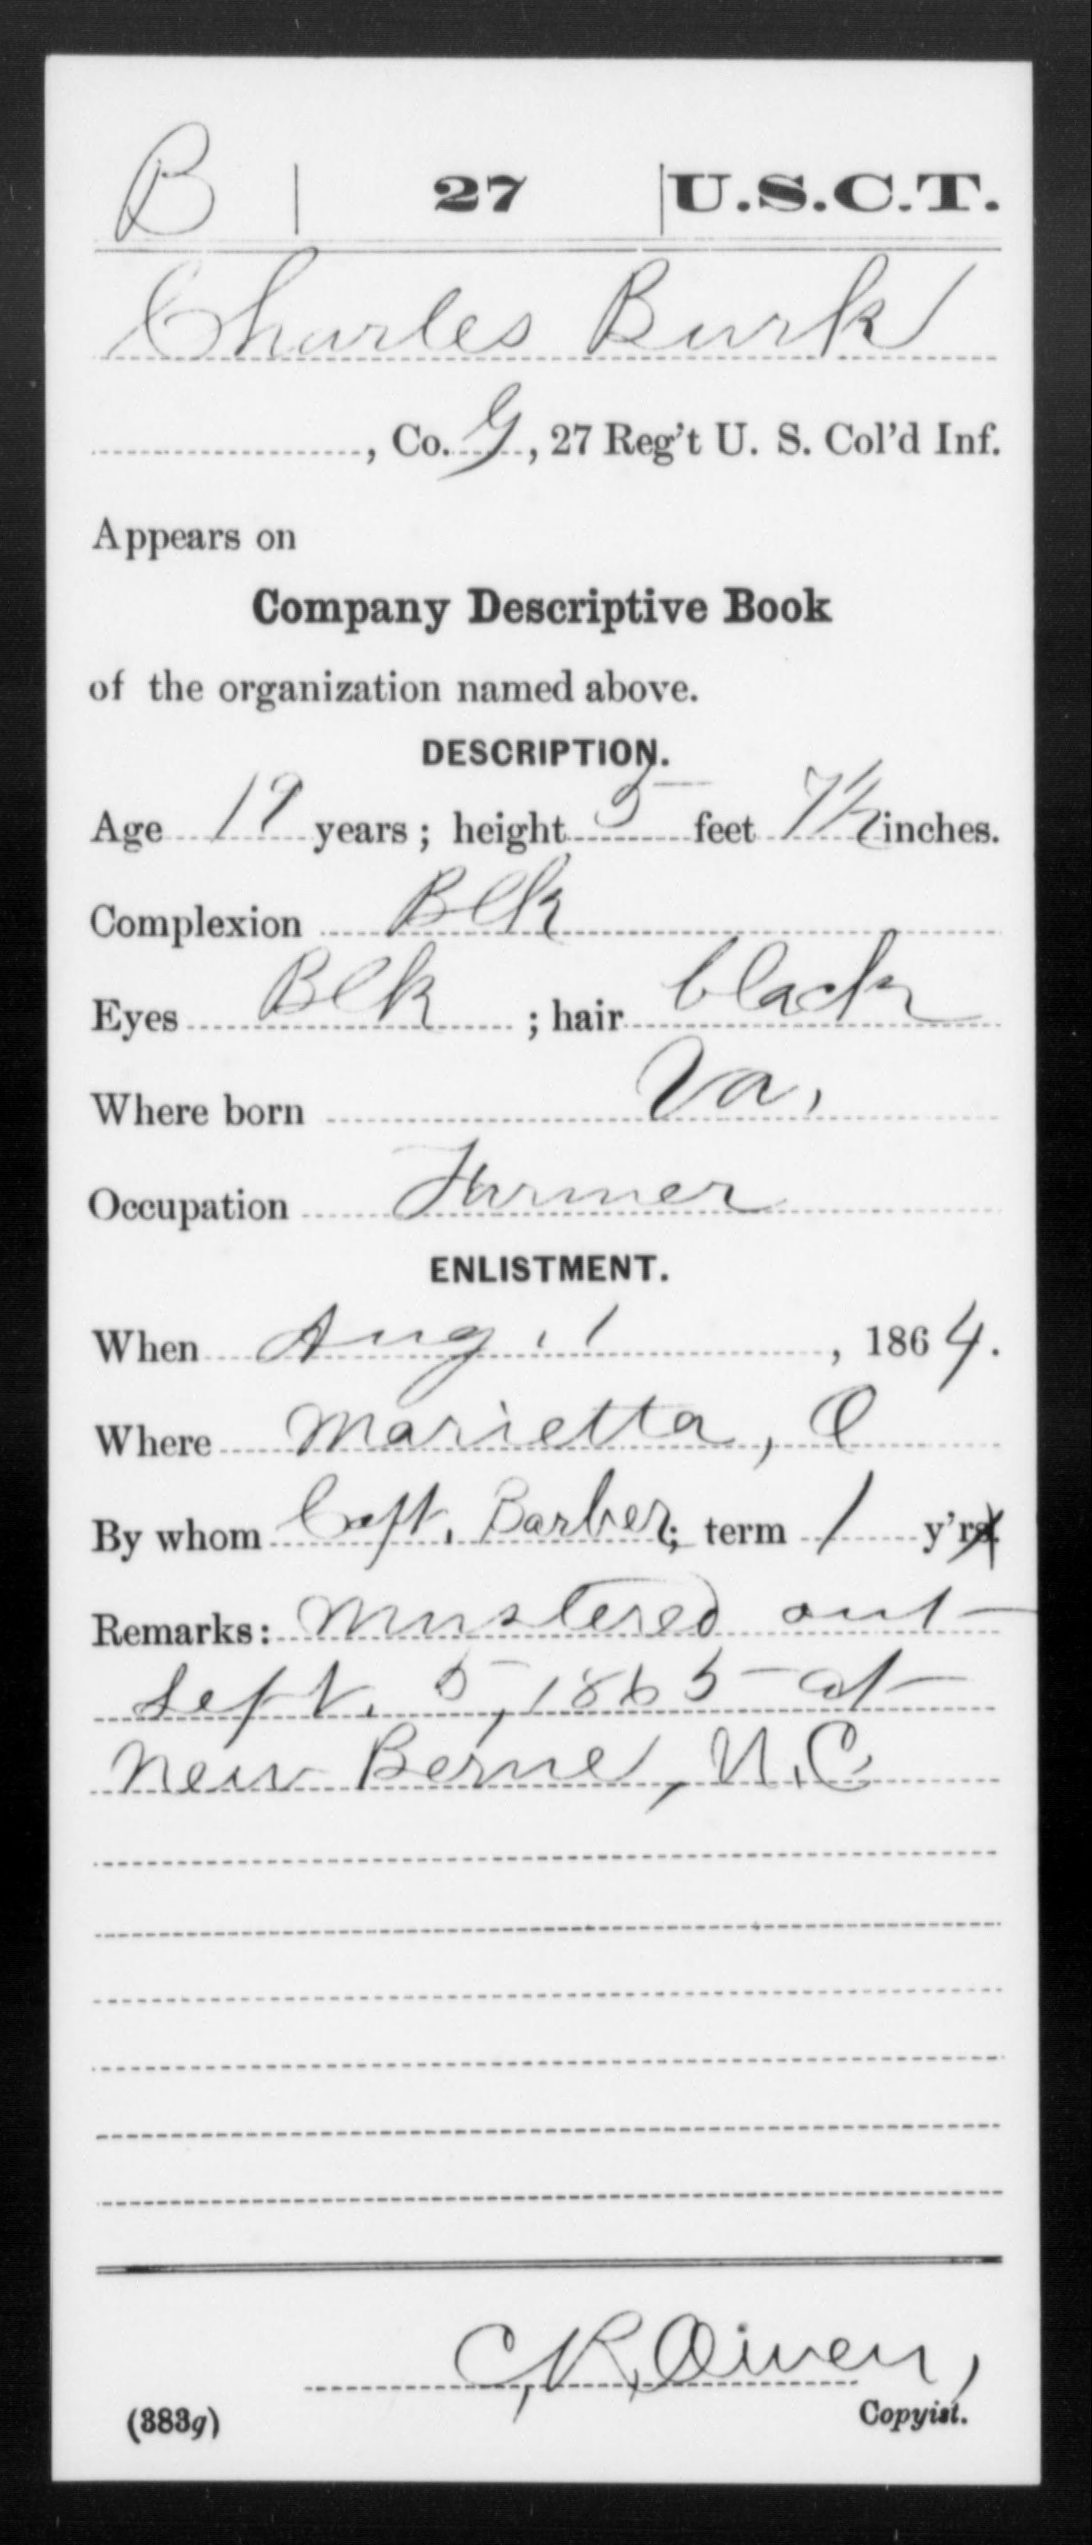 B | 27 | U.S.C.T.
Charles Burk
, Co. G, 27 Reg't U. S. Col'd Inf.
Appears on
Company Descriptive Book
of the organization named above.
DESCRIPTION.
Age 19 years; height 5 feet 7½ inches.
Complexion Blk
Eyes Blk ; hair black
Where born Va,
Occupation Farmer
ENLISTMENT.
When Aug. 1, 1864.
Where Marietta, O
By whom Capt. Barber; term 1 y'rs.
Remarks: Mustered out
Sept. 5, 1865 at
New Berne, N.C
C, R, Owen,
Copyist.
(383g)